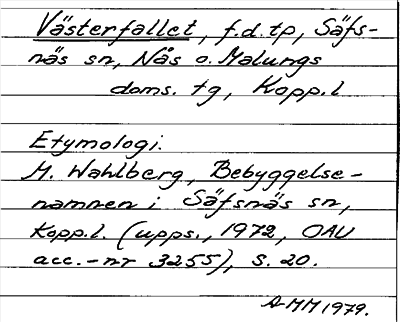 Västerfallet, f.d. tp, Säfs-
näs sn, Nås o. Malungs
doms. tg, Kopp.l
Etymologi.
M. Wahlberg, Bebyggelse-
namnen i Säfsnäs sn,
Kopp.l. (upps., 1972, OAU
acc.-nr 3255), s. 20.
A-MM 1979.